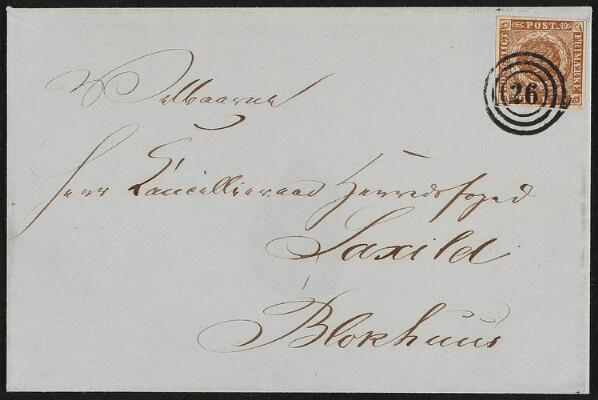 POST
FRIMÆRKE
26
Velbaarne
Herr Cancelliraad Herredsfoged
Saxild
Blokhuus